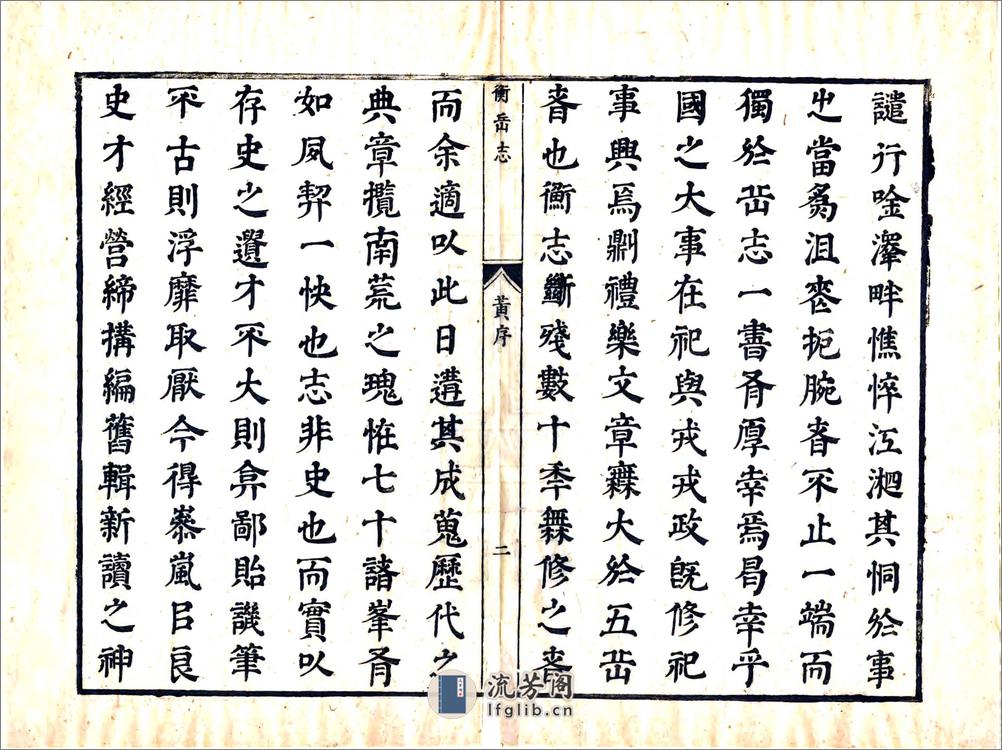 譴行唫澤畔憔悴江其恫於事
㞢當沮扼腕者不止一端而
獨於岳志一書有厚幸焉曷幸乎
國之大事在祀與戎戎政既修祀
事興焉剬禮樂文章無大於五岳
者也衡志斷殘數十年無修之者
衡岳志
黃序
二
而余適以此日遘其成蒐歷代之
典章攬南荒之瑰恠七十諸峯有
如夙契一快也志非史也而實以
存史之遺才不大則弇鄙貽譏筆
不古則浮靡取厭今得嵐㠯良
史才經營締搆編舊輯新讀之神
流芳阁
lfglib.cn